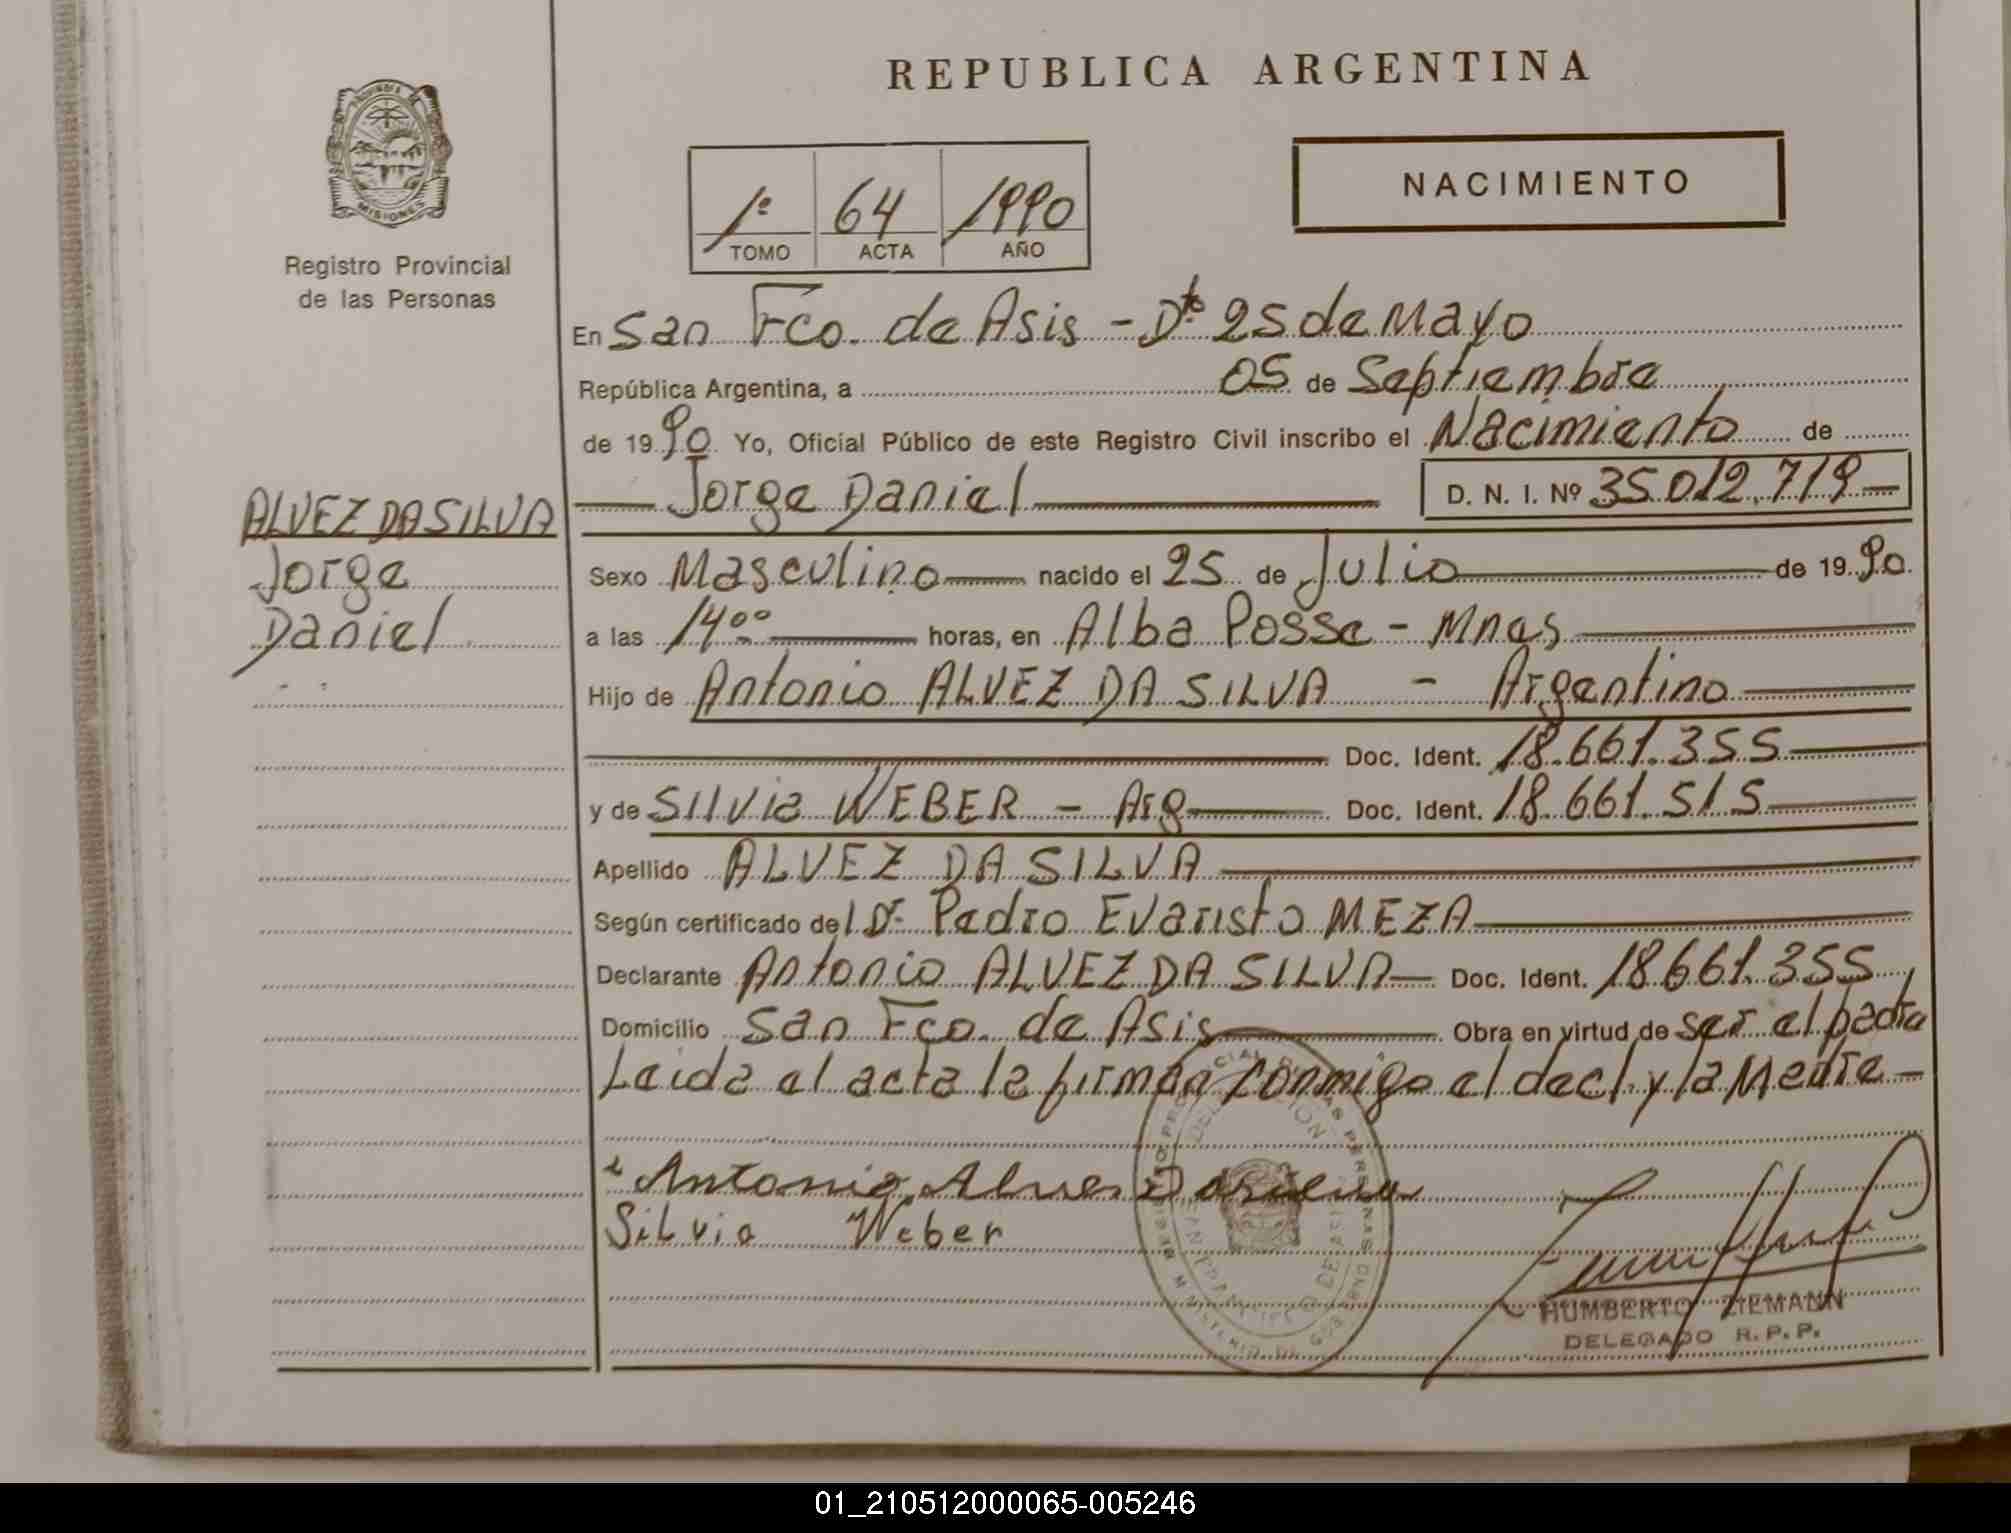 REPUBLICA ARGENTINA
PROVINCIA DE
MISIONES
Registro Provincial
de las Personas
1º 64 1990
TOMO ACTA AÑO
NACIMIENTO
En San Fco. de Asis - Dto 25 de Mayo
República Argentina, a 05 de Septiembre
de 1990 Yo, Oficial Público de este Registro Civil inscribo el Nacimiento de
Jorge Daniel D. N. I. Nº 35.012.719
ALVEZ DA SILVA
Jorge
Daniel
Sexo Masculino nacido el 25 de Julio de 1990.
a las 14°° horas, en Alba Posse - Mnes
Hijo de Antonio ALVEZ DA SILVA - Argentino
Doc. Ident. 18.661.355
y de Silvia WEBER - Arg Doc. Ident. 18.661.515
Apellido ALVEZ DA SILVA
Según certificado del Dr. Pedro Evaristo MEZA
Declarante Antonio ALVEZ DA SILVA Doc. Ident. 18.661.355
Domicilio San Fco. de Asis Obra en virtud de ser el padre
Leida el acta la firman conmigo el decl. y la Madre -
Antonio Alves Da silva
Silvia Weber
HUMBERTO ZIEMANN
DELEGADO R. P. P.
01_210512000065-005246